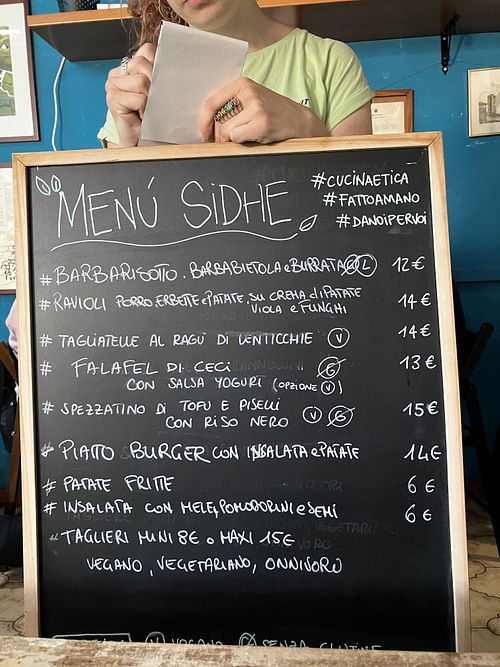 MENÚ SIDHE
#CUCINAETICA
#FATTOAMANO
#DANOIPERVOI
# BARBARISOTTO. BARBABIETOLA e BURRATA G L 12€
# RAVIOLI PORRO, ERBETTE e PATATE, SU CREMA di PATATE
VIOLA e FUNGHI 14€
# TAGLIATELLE AL RAGÙ DI LENTICCHIE V 14€
# FALAFEL DI CECI G 13€
CON SALSA YOGURT (OPZIONE V)
# SPEZZATINO DI TOFU E PISELLI V G 15€
CON RISO NERO
# PIATTO BURGER CON INSALATA e PATATE 14€
# PATATE FRITTE 6€
# INSALATA CON MELE, POMODORINI e SEMI 6€
# TAGLIERI MINI 8€ o MAXI 15€
VEGANO, VEGETARIANO, ONNIVORO
V VEGANO G SENZA GLUTINE